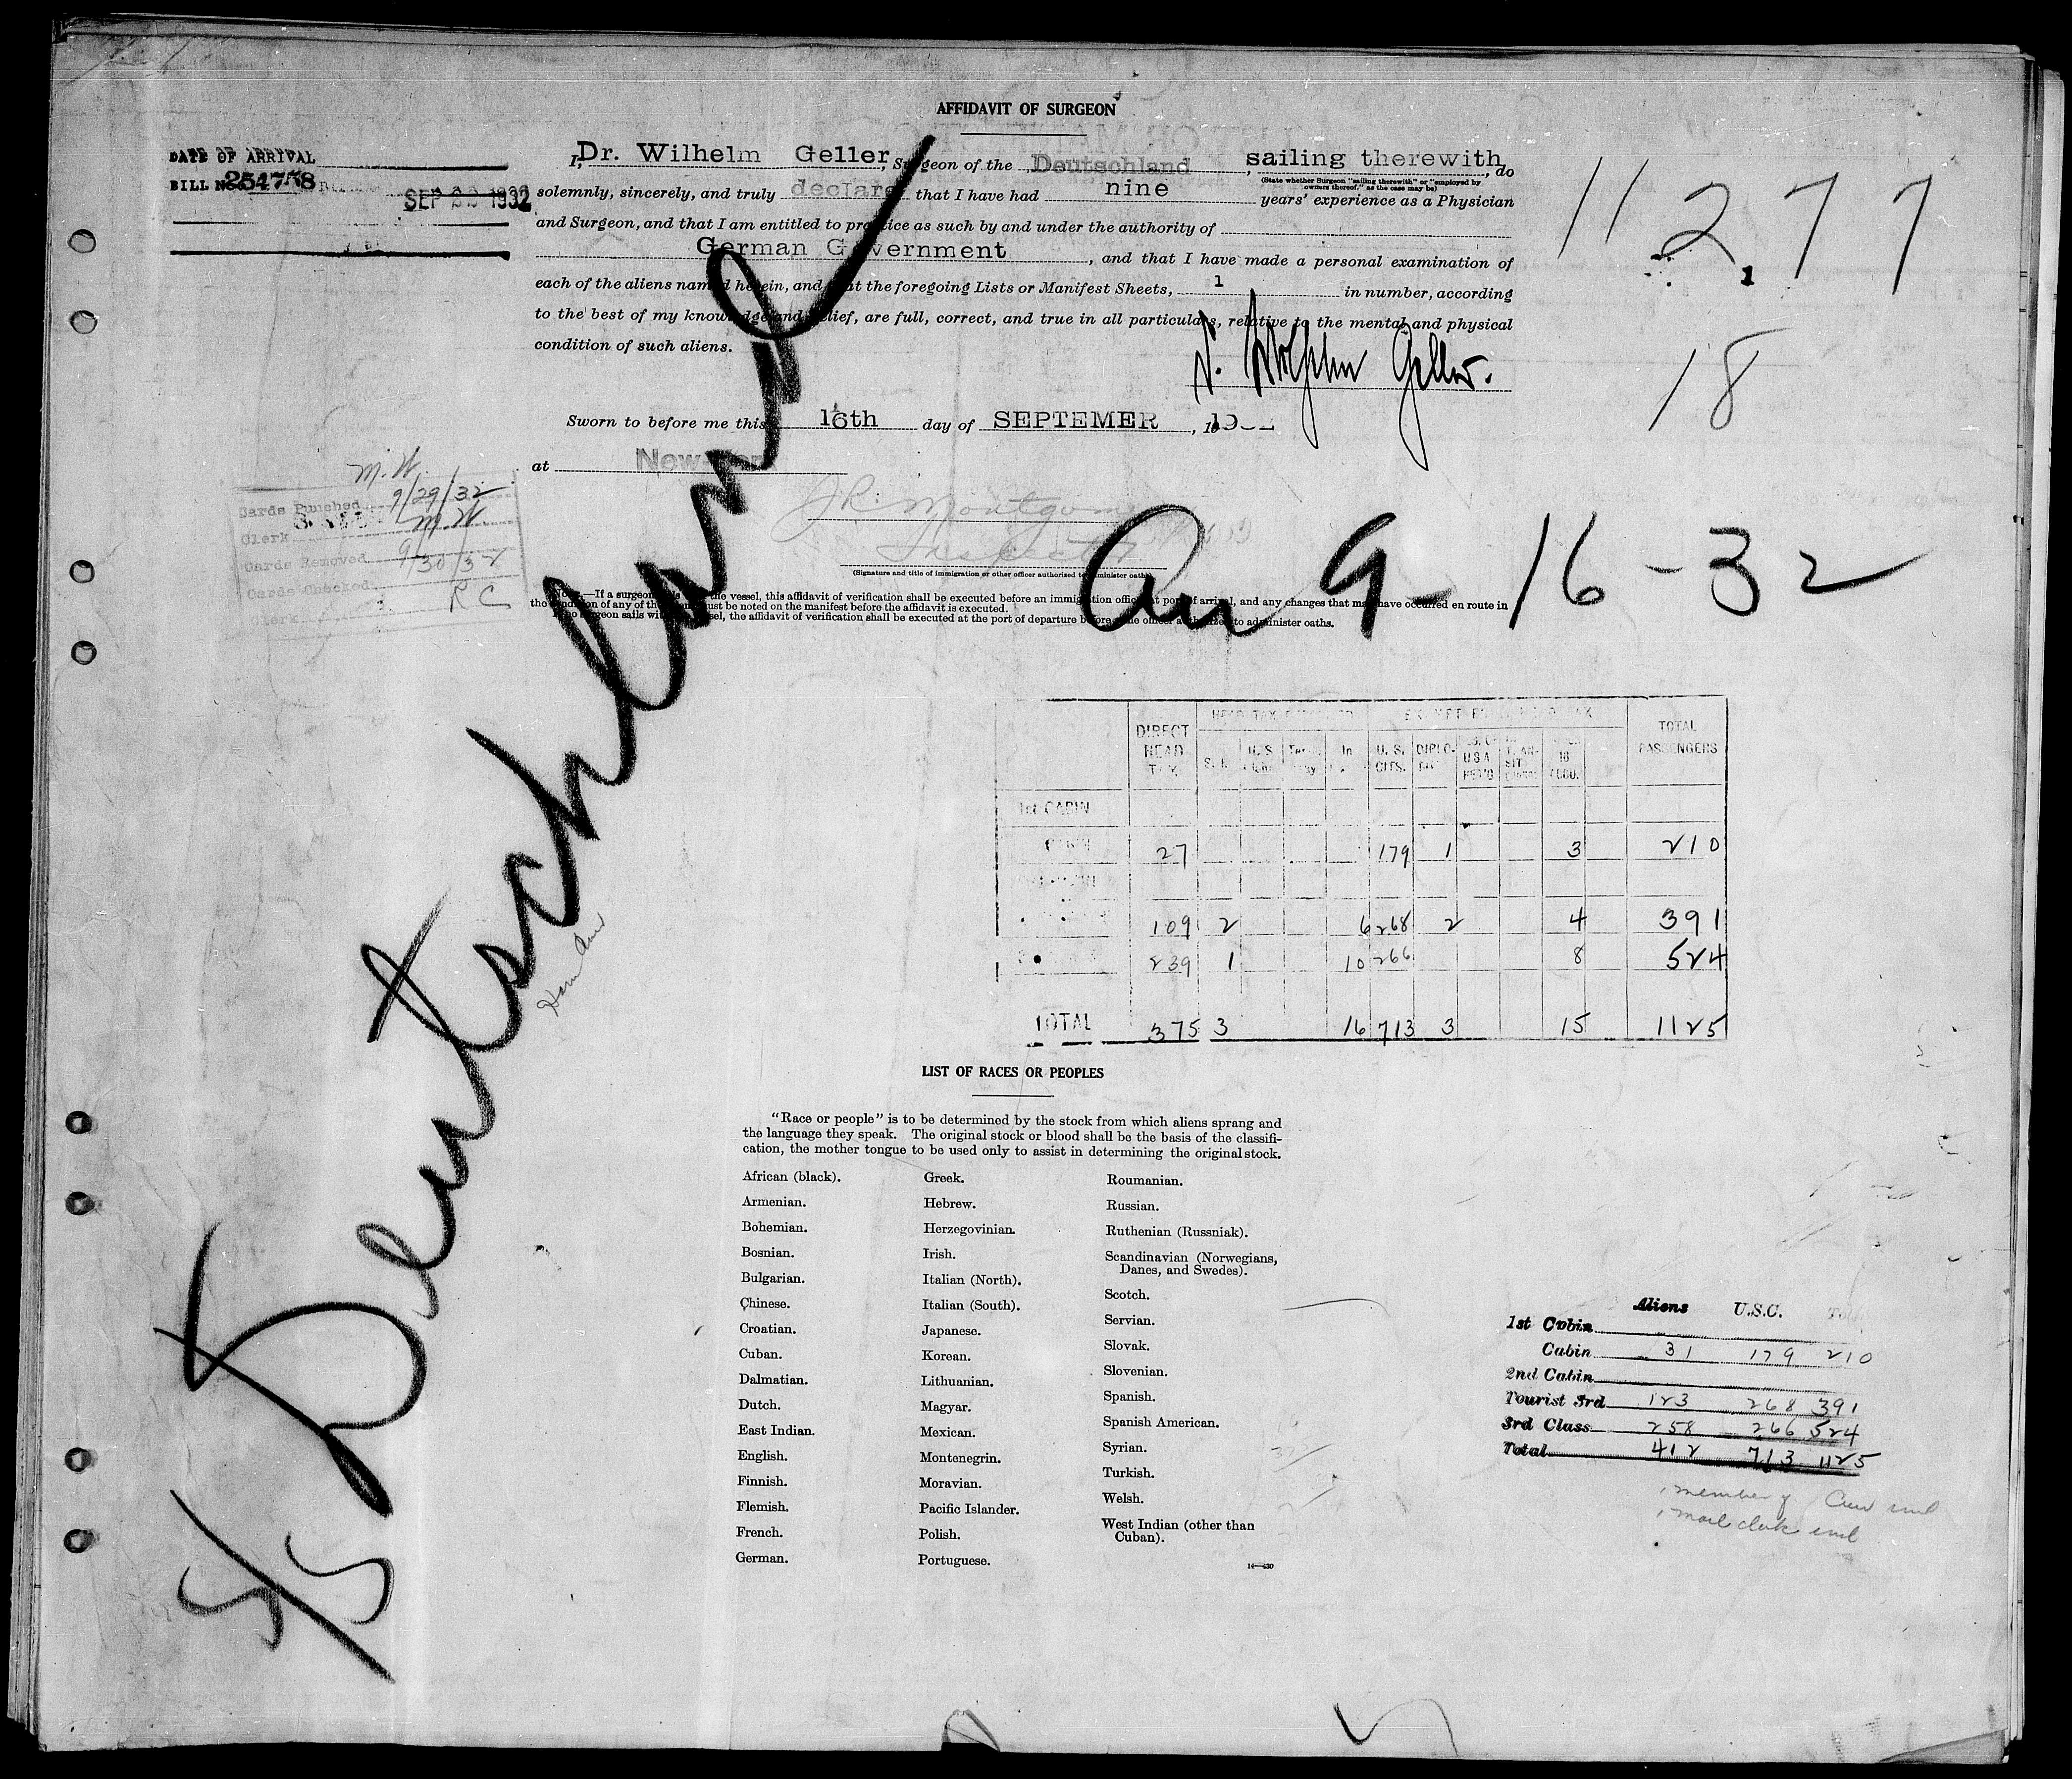 AFFIDAVIT OF SURGEON
DATE OF ARRIVAL
BILL No. 254758
SEP 1932
I, Dr. Wilhelm Geller, Surgeon of the Deutschland, sailing therewith, do
(State whether Surgeon "sailing therewith" or "employed by owners thereof," as the case may be)
solemnly, sincerely, and truly declare that I have had nine years' experience as a Physician
and Surgeon, and that I am entitled to practice as such by and under the authority of
German Government, and that I have made a personal examination of
each of the aliens named herein, and that the foregoing Lists or Manifest Sheets, 1 in number, according
to the best of my knowledge and belief, are full, correct, and true in all particulars, relative to the mental and physical
condition of such aliens.
Dr. Wilhelm Geller.
11277
1
18
Sworn to before me this 16th day of SEPTEMER, 1932
at New York
J.R. Montgomery
Inspector
(Signature and title of immigration or other officer authorized to administer oaths)
M.W.
Cards Punched 9/29/32
Clerk M.W.
Cards Removed 9/30/32
Cards Checked
Clerk R C
Arr 9-16-32
NOTE.—If a surgeon sails with the vessel, this affidavit of verification shall be executed before an immigration officer at port of arrival, and any changes that may have occurred en route in
the condition of any of the aliens must be noted on the manifest before the affidavit is executed.
If no surgeon sails with the vessel, the affidavit of verification shall be executed at the port of departure before some officer authorized to administer oaths.
S/S Deutschland
Ham Am
DIRECT HEAD TAX
U.S. CITS.
DIPLO-
U.S.A
TOTAL PASSENGERS
1st CABIN
CABIN 27 179 1 3 210
109 2 6 268 2 4 391
239 1 10 266 8 524
TOTAL 375 3 16 713 3 15 1125
LIST OF RACES OR PEOPLES
"Race or people" is to be determined by the stock from which aliens sprang and
the language they speak. The original stock or blood shall be the basis of the classifi-
cation, the mother tongue to be used only to assist in determining the original stock.
African (black).
Armenian.
Bohemian.
Bosnian.
Bulgarian.
Chinese.
Croatian.
Cuban.
Dalmatian.
Dutch.
East Indian.
English.
Finnish.
Flemish.
French.
German.
Greek.
Hebrew.
Herzegovinian.
Irish.
Italian (North).
Italian (South).
Japanese.
Korean.
Lithuanian.
Magyar.
Mexican.
Montenegrin.
Moravian.
Pacific Islander.
Polish.
Portuguese.
Roumanian.
Russian.
Ruthenian (Russniak).
Scandinavian (Norwegians,
Danes, and Swedes).
Scotch.
Servian.
Slovak.
Slovenian.
Spanish.
Spanish American.
Syrian.
Turkish.
Welsh.
West Indian (other than
Cuban).
14—430
Aliens U.S.C.
1st Cabin
Cabin 31 179 210
2nd Cabin
Tourist 3rd 123 268 391
3rd Class 258 266 524
Total 412 713 1125
1 member of Crew incl
1 mail clerk incl